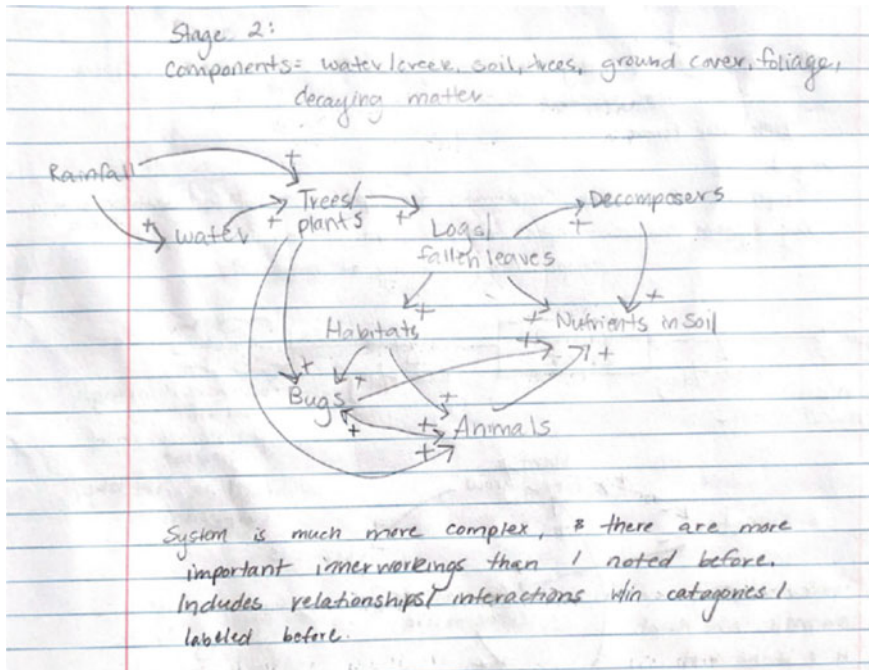 Stage 2:
Components= water/creek, soil, trees, ground cover, foliage,
decaying matter
Rainfall
+
Trees/
plants
+
Decomposers
+
+ water
+
Logs/
fallen leaves
+
+
+
Habitats
+
Nutrients in soil
+
+
+
Bugs
+
+
+
+
Animals
+
System is much more complex, & there are more
important innerworkings than I noted before.
Includes relationships/ interactions w/in catagories I
labeled before.